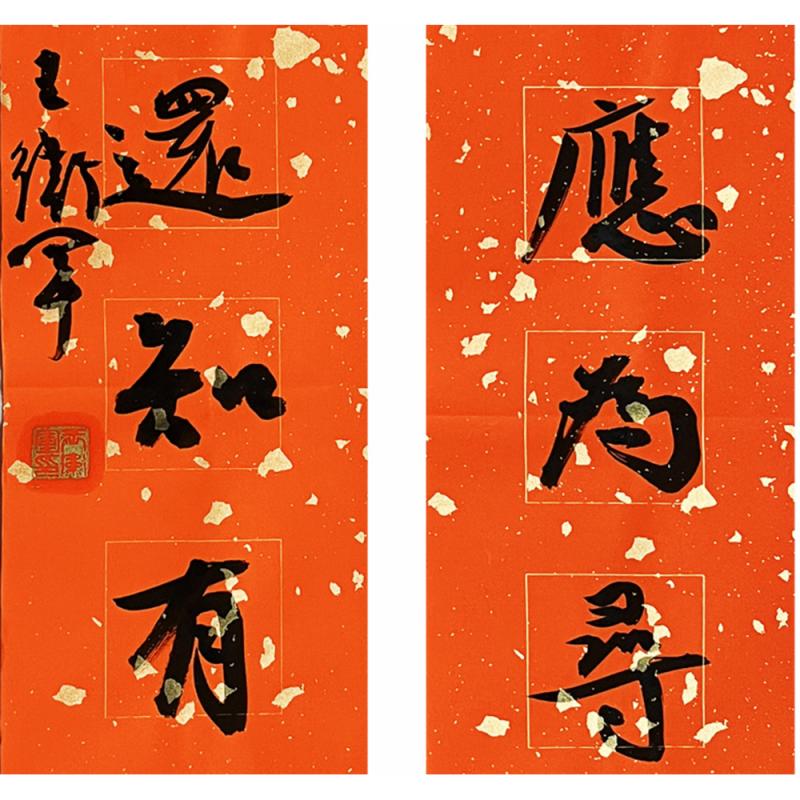 應為尋
還知有
王衛軍